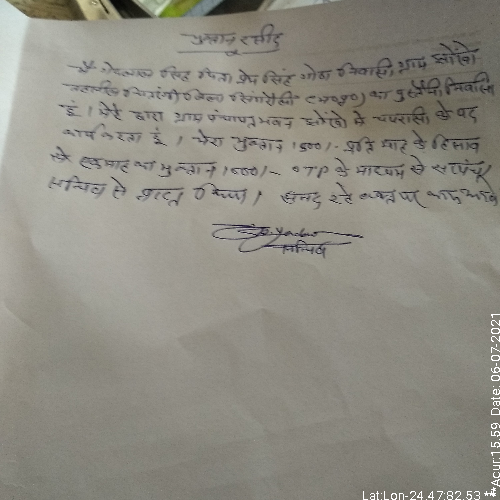 भुगतान रसीद
मै सिंह पिता प्रेम सिंह गोंड निवासी ग्राम
जिला सिंगरौली (म०प्र०) का निवासी
हूं। मेरे द्वारा ग्राम पंचायत भवन में चपरासी के पद
कार्य करता हूं। मेरा भुगतान 1500/- प्रति माह के हिसाब
से एक माह का भुगतान 1500/- OTP के माध्यम से सरपंच/
सचिव से प्राप्त किया। सनद रहे वक्त पर काम आवे
सचिव
Lat:Lon-24.47:82.53 **Acur:15.59 Date: 06-07-2021